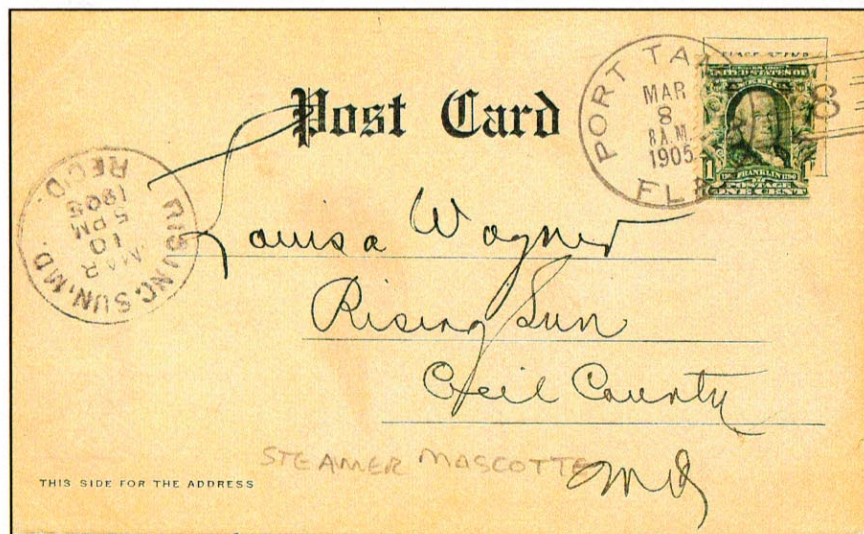 Post Card
PORT TA
MAR
8
8 A.M.
1905
FLA
8
UNITED STATES OF
AMERICA
1 FRANKLIN 1
POSTAGE
ONE CENT
RISING SUN, MD.
MAR
10
5 PM
1905
REC'D.
Louisa Wagner
Rising Sun
Cecil County
Md
STEAMER MASCOTTE
THIS SIDE FOR THE ADDRESS